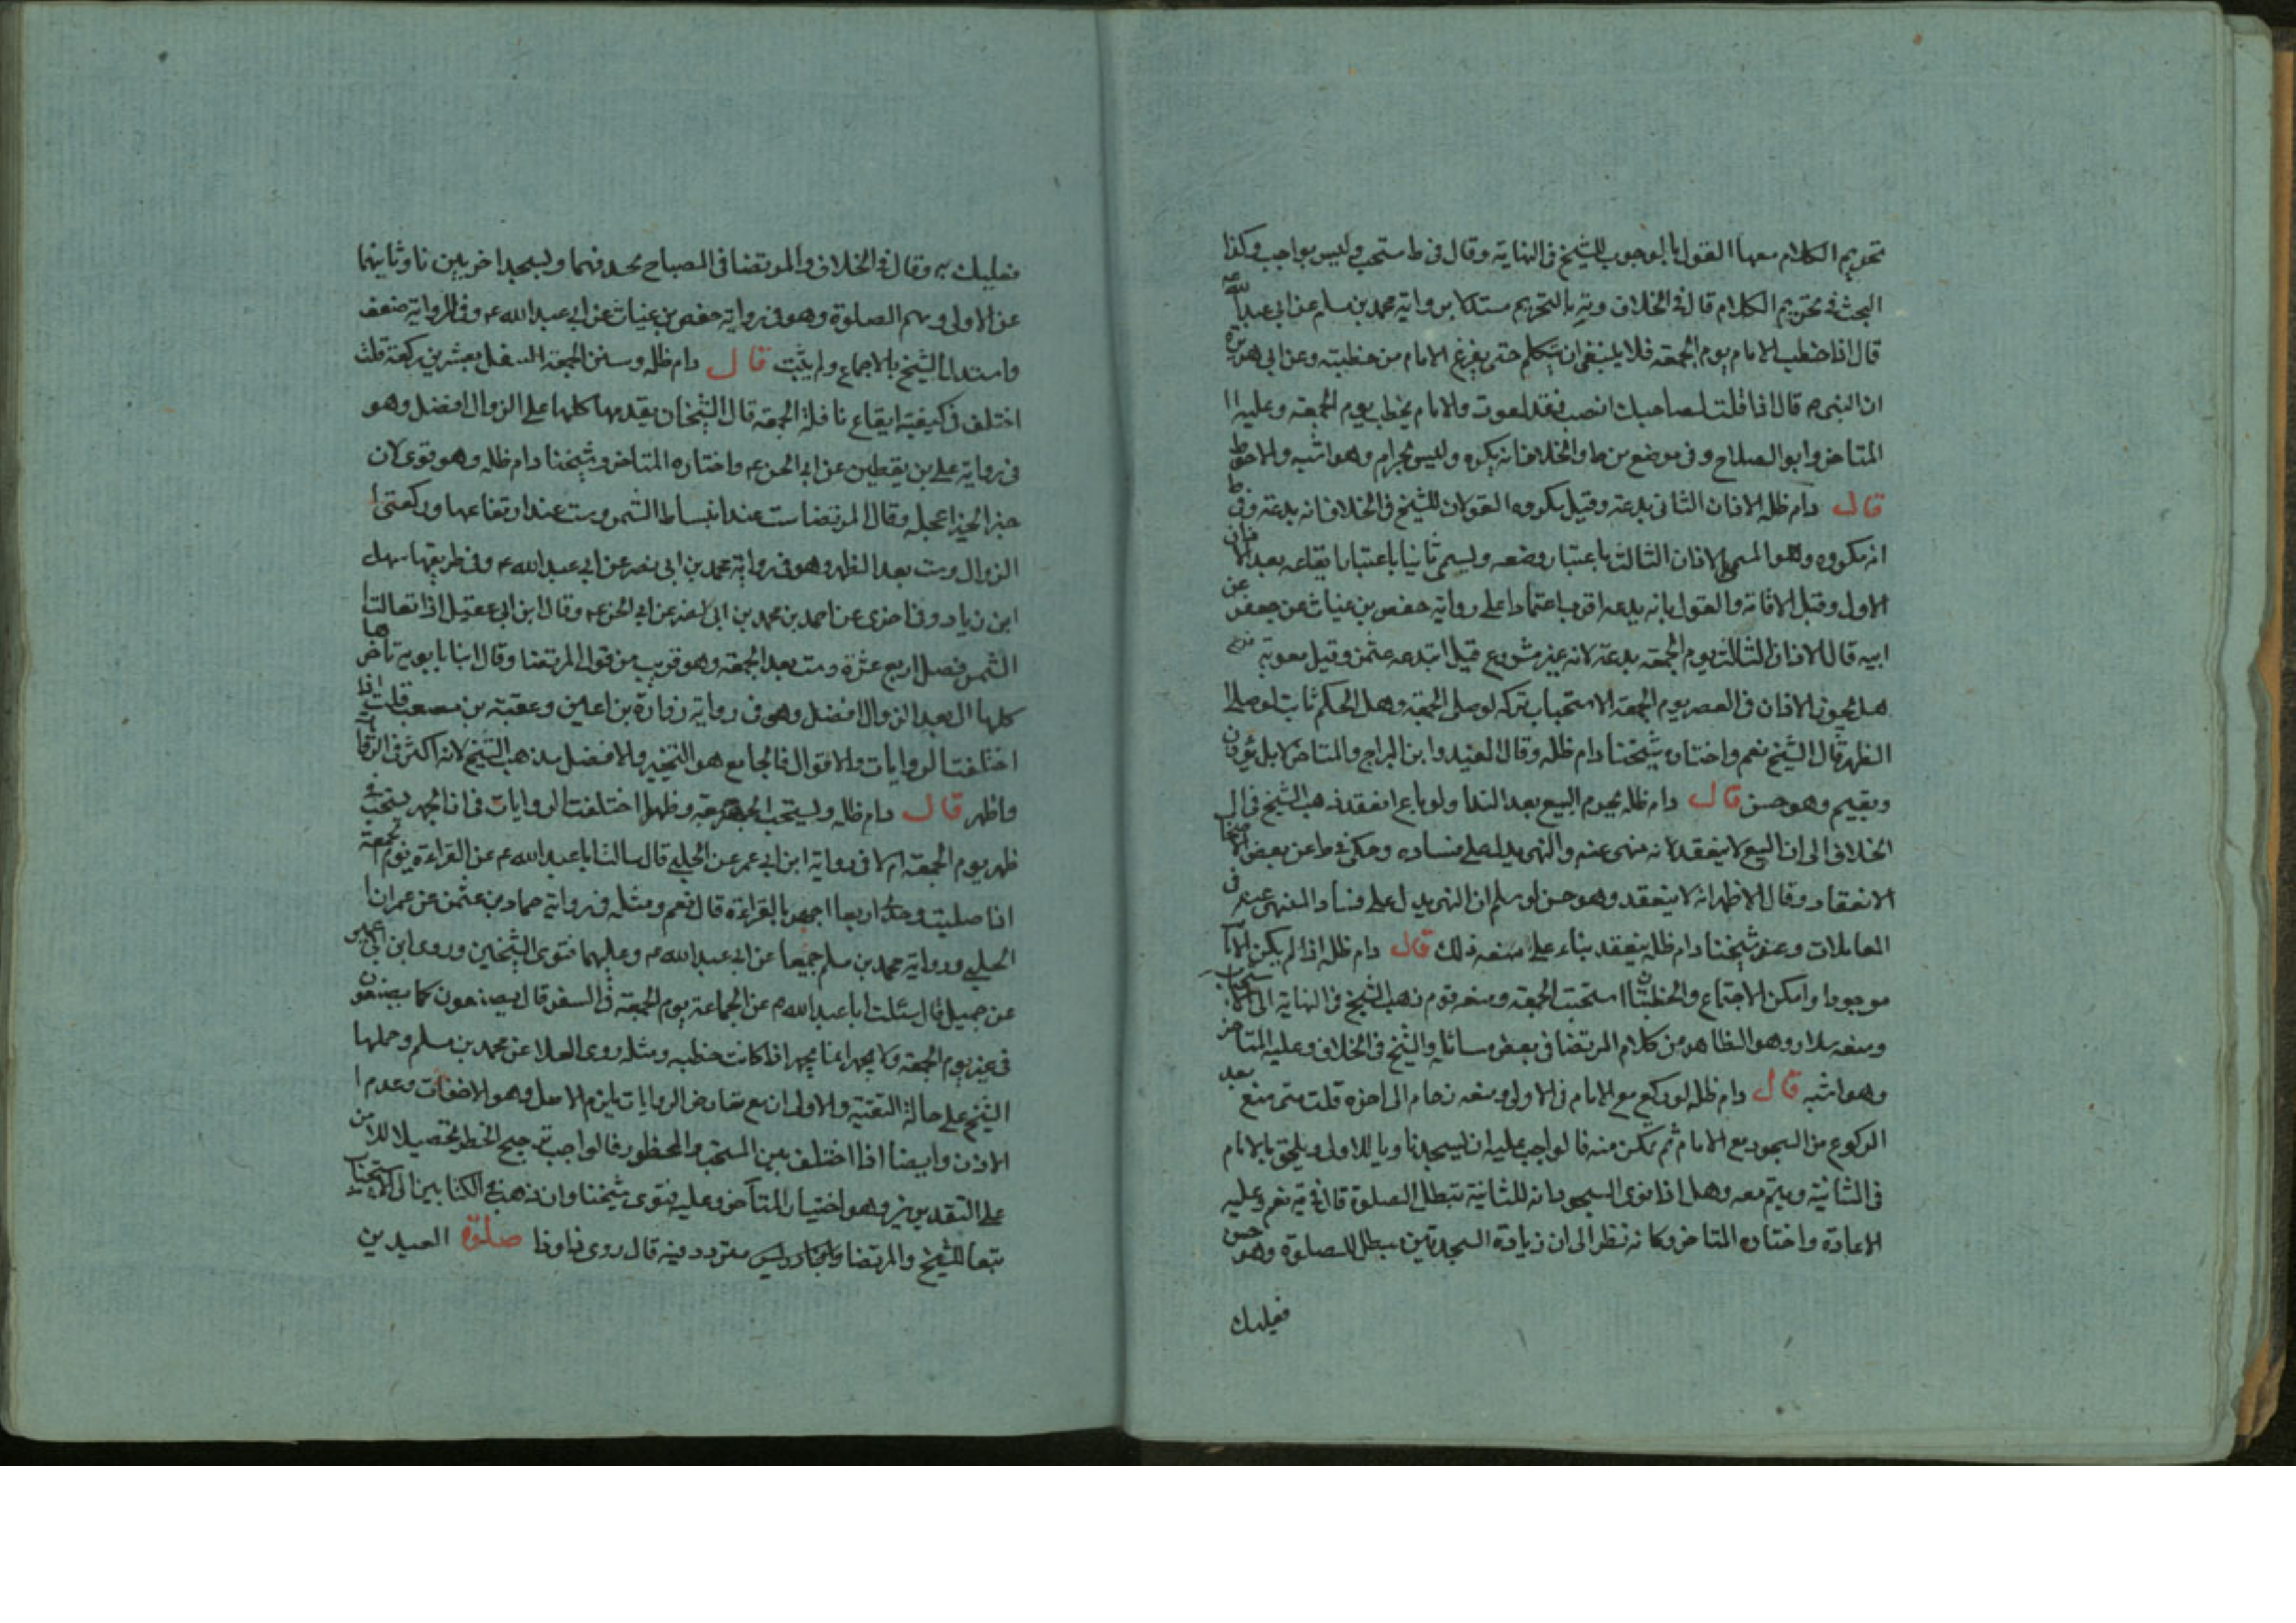 تحريم الكلام معها القول بالوجوب للشيخ في النهاية وقال في ط مستحب وليس بواجب وكذا
البحث في تحريم الكلام قال في الخلاف وية بالتحريم مستدلا برواية محمد بن مسلم عن ابي عبد الله ع
قال اذا خطب الامام يوم الجمعة فلا ينبغي ان يتكلم حتى يفرغ الامام من خطبته وعن ابي هريرة
ان النبي ص قال اذا قلت لصاحبك انصت فقد لغوت والامام يخطب يوم الجمعة وعليه
المتاخر وابو الصلاح وفي موضع من ط والخلاف انه يكره وليس بحرام وهو اشبه والاحوط
قال دام ظله الاذان الثاني بدعة وقيل مكروه القولان للشيخ في الخلاف انه بدعة وفي ط
انه مكروه وهو المسمى الاذان الثالث باعتبار وضعه ويسمى ثانيا باعتبار ايقاعه بعد الاذان
الاول وقبل الاقامة والقول بانه بدعة اقرب اعتمادا على رواية حفص بن غياث عن جعفر عن
ابيه قال الاذان الثالث يوم الجمعة بدعة لانه غير مشروع قيل ابتدعه عثمن وقيل معوية فرع
هل يجوز الاذان في العصر يوم الجمعة الاستحباب تركه لو صلى الجمعة وهل الحكم ثابت لو صلى
الظهر قال الشيخ نعم واختاره شيخنا دام ظله وقال المفيد وابن البراج والمتاخر لا بل يؤذن
ويقيم وهو حسن قال دام ظله يحرم البيع بعد الندا ولو باع انعقد ذهب الشيخ في
الخلاف الى ان البيع لا ينعقد لانه منهي عنه والنهي يدل على فساده وحكى في ط عن بعض اصحابنا
الانعقاد وقال الاظهر انه لا ينعقد وهو حسن لو سلم ان النهي يدل على فساد المنهي عنه في
المعاملات وعند شيخنا دام ظله ينعقد بناء على منعه ذلك قال دام ظله اذا لم يكن الامام
موجودا وامكن الاجتماع والخطبتان استحبت الجمعة ومنعه قوم ذهب الشيخ في النهاية الى الاستحباب
ومنعه سلار وهو الظاهر من كلام المرتضا في بعض مسائله والشيخ في الخلاف وعليه المتاخر
وهو اشبه قال دام ظله لو ركع مع الامام في الاولى ومنعه زحام الى اخره قلت متى منع بعد
الركوع من السجود مع الامام ثم تمكن منه فالواجب عليه ان يسجد ناويا للاولى ويلحق بالامام
في الثانية ويتم معه وهل اذا نوى السجود بانه للثانية تبطل الصلوة قال في ية نعم وعليه
الاعادة واختاره المتاخر وكانه نظر الى ان زيادة السجدتين مبطل للصلوة وهو حسن
فعليك
فعليك به وقال في الخلاف والمرتضا في المصباح يحذفهما ويسجد اخريين ناويا بهما
عن الاولى ويتم الصلوة وهو في رواية حفص بن غياث عن ابي عبد الله ع وفي الرواية ضعف
واستدل الشيخ بالاجماع ولم يثبت قال دام ظله وسنن الجمعة التنفل بعشرين ركعة قلت
اختلف في كيفية ايقاع نافلة الجمعة قال الشيخان يقدمها كلها على الزوال افضل وهو
في رواية علي بن يقطين عن ابي الحسن ع واختاره المتاخر وشيخنا دام ظله وهو قوي لان
خير الخير اعجله وقال المرتضا ست عند انبساط الشمس وست عند ارتفاعها وركعتي
الزوال وست بعد الظهر وهو في رواية محمد بن ابي نصر عن ابي عبد الله ع وفي طريقها سهل
ابن زياد وفي اخرى عن احمد بن محمد بن ابي نصر عن ابي الحسن ع وقال ابن ابي عقيل اذا تعالت
الشمس فصل اربع عشرة وست بعد الجمعة وهو قريب من قول المرتضا وقال ابنا بابويه تاخرها
كلها الى بعد الزوال افضل وهو في رواية زرارة بن اعين وعقبة بن مصعب قلت اذا
اختلفت الروايات والاقوال فالجامع هو التخيير والافضل مذهب الشيخ لانه اكثر في الروايات
واظهر قال دام ظله ويستحب الجهر جمعة وظهرا اختلفت الروايات في ان الجهر يستحب في
ظهر يوم الجمعة ام لا في رواية ابن ابي عمير عن الحلبي قال سالت ابا عبد الله ع عن القراءة يوم الجمعة
اذا صليت وحدي اربعا اجهر بالقراءة قال نعم ومثله في رواية حماد بن عثمن عن عمران
الحلبي ورواية محمد بن مسلم جميعا عن ابي عبد الله ع وعليهما فتوى الشيخين وروى ابن ابي عمير
عن جميل قال سئلت ابا عبد الله ع عن الجماعة يوم الجمعة في السفر قال يصنعون كما يصنعون
في غير يوم الجمعة ولا يجهر انما يجهر اذا كانت خطبة ومثله روى العلا عن محمد بن مسلم وحملها
الشيخ على حالة التقية والاولى ان مع تعارض الروايات يلزم الاصل وهو الاخفات وعدم
الاذن وايضا اذا اختلف بين المستحب والمحظور فالواجب ترجيح الخطر تحصيلا للامن
على التقديرين وهو اختيار المتاخر وعليه فتوى شيخنا وان ذهب في الكتابين الى الاستحباب
تبعا للشيخ والمرتضا متردد فيه قال روى ذا وذا صلوة العيدين